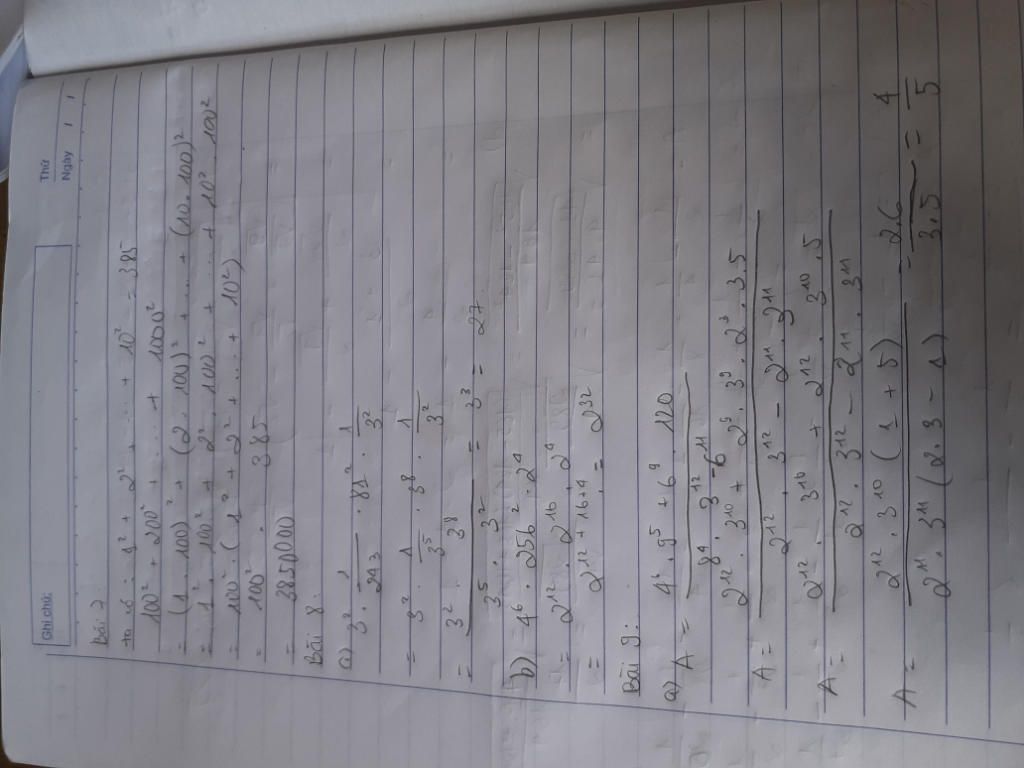 Ghi chú:
Thứ
Ngày
Bài 7
ta có: 1² + 2² + .... + 10² = 385
100² + 200² + .... + 1000²
= (1.100)² + (2.100)² + .... + (10.100)²
= 1².100² + 2².100² + .... + 10².100²
= 100².(1² + 2² + .... + 10²)
= 100².385
= 3850000
Bài 8:
a) 3² . 1/243 . 81² . 1/3²
= 3² . 1/3⁵ . 3⁸ . 1/3²
= 3² . 3⁸ / 3⁵ . 3² = 3³ = 27
b) 4⁶ . 256² . 2⁴
= 2¹² . 2¹⁶ . 2⁴
= 2¹²⁺¹⁶⁺⁴ = 2³²
Bài 9:
a) A = 4⁶ . 9⁵ + 6⁹ . 120 / 8⁴ . 3¹² - 6¹¹
A = 2¹² . 3¹⁰ + 2⁹ . 3⁹ . 2³ . 3.5 / 2¹² . 3¹² - 2¹¹ . 3¹¹
A = 2¹² . 3¹⁰ + 2¹² . 3¹⁰ . 5 / 2¹² . 3¹² - 2¹¹ . 3¹¹
A = 2¹² . 3¹⁰ (1 + 5) / 2¹¹ . 3¹¹ (2.3 - 1) = 2.6 / 3.5 = 4/5